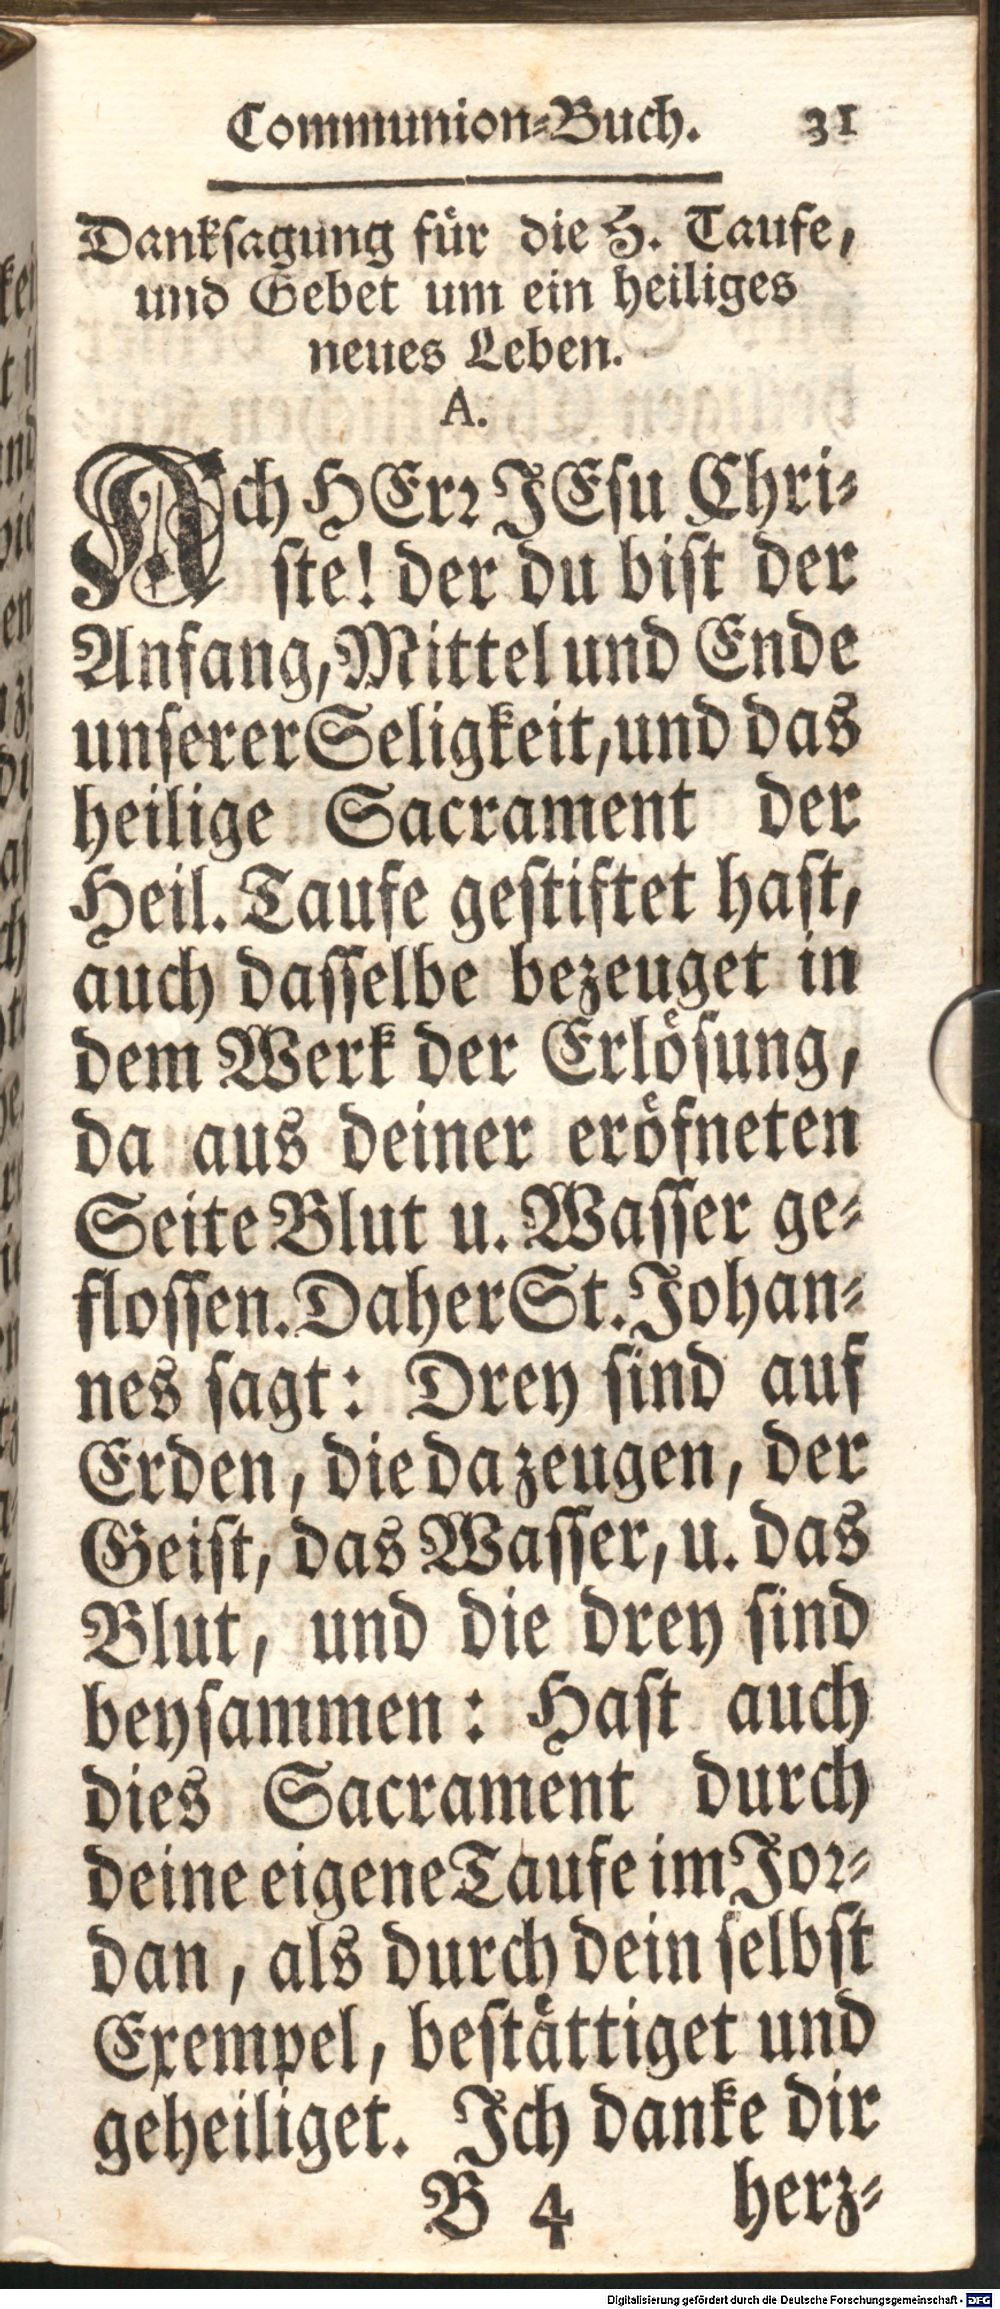 Communion-Buch. 31
Dankſagung fuͤr die H. Taufe,
und Gebet um ein heiliges
neues Leben.
A.
Ach HErꝛ JEſu Chri-
ſte! der du biſt der
Anfang, Mittel und Ende
unſerer Seligkeit, und das
heilige Sacrament der
Heil. Taufe geſtiftet haſt,
auch daſſelbe bezeuget in
dem Werk der Erloͤſung,
da aus deiner eroͤfneten
Seite Blut u. Waſſer ge-
floſſen. Daher St. Johan-
nes ſagt: Drey ſind auf
Erden, die da zeugen, der
Geiſt, das Waſſer, u. das
Blut, und die drey ſind
beyſammen: Haſt auch
dies Sacrament durch
deine eigene Taufe im Joꝛ-
dan, als durch dein ſelbſt
Exempel, beſtaͤttiget und
geheiliget. Ich danke dir
B 4 herz-
Digitalisierung gefördert durch die Deutsche Forschungsgemeinschaft - DFG